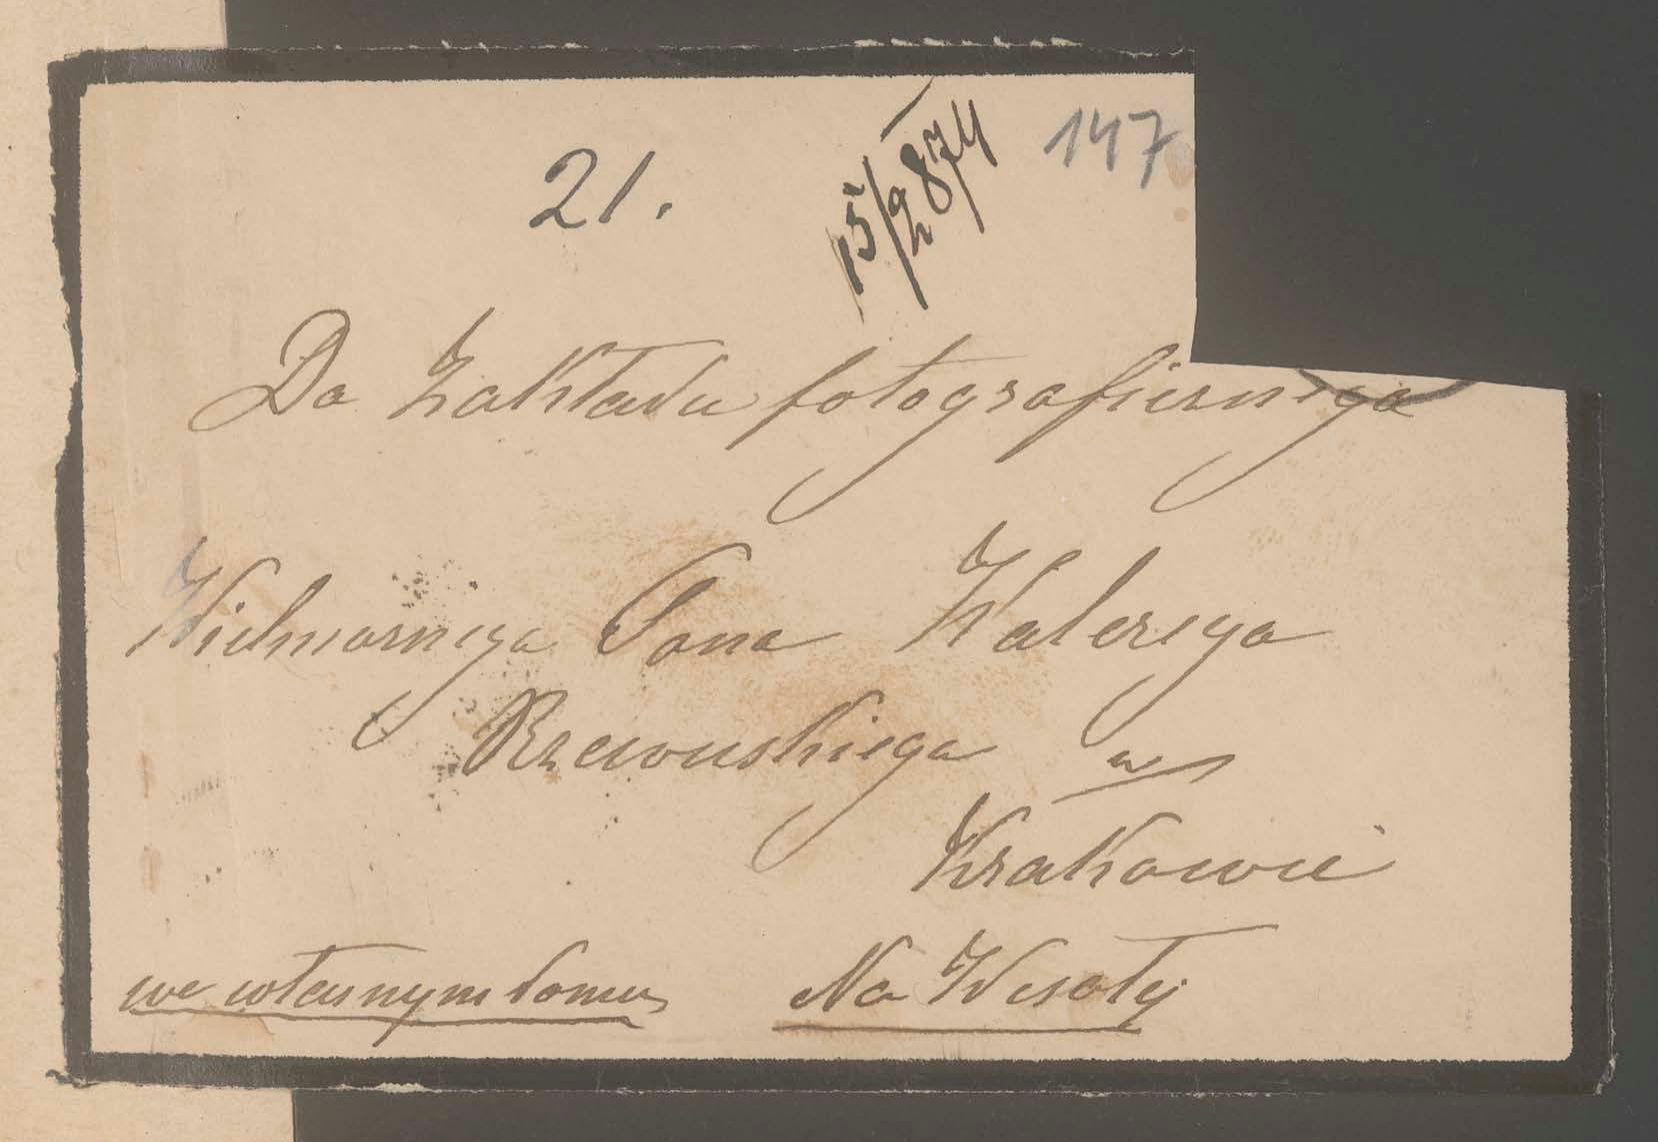 21.
15/2 874
147
Do Zakładu fotograficznego
Wielmożnego Pana Walerego
Rzewuskiego w
Krakowie
we własnym domu Na Wesołej